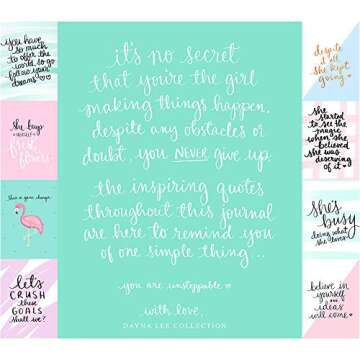 you have
so much
to offer the
world so go
follow your
dreams
she buys
herself
fresh
flowers
this is game changer.
let's
CRUSH
these
GOALS
shall we?
it's no secret
that you're the girl
making things happen.
despite any obstacles or
doubt, you NEVER give up.
the inspiring quotes
throughout this journal
are here to remind you
of one simple thing...
you are unstoppable
with love,
DAYNA LEE COLLECTION
despite
it all
she kept
going
she
started
to see the
magic
when she
believed
she was
deserving
of it
she's
busy
doing what
she loves
believe in
yourself
and
ideas
will come